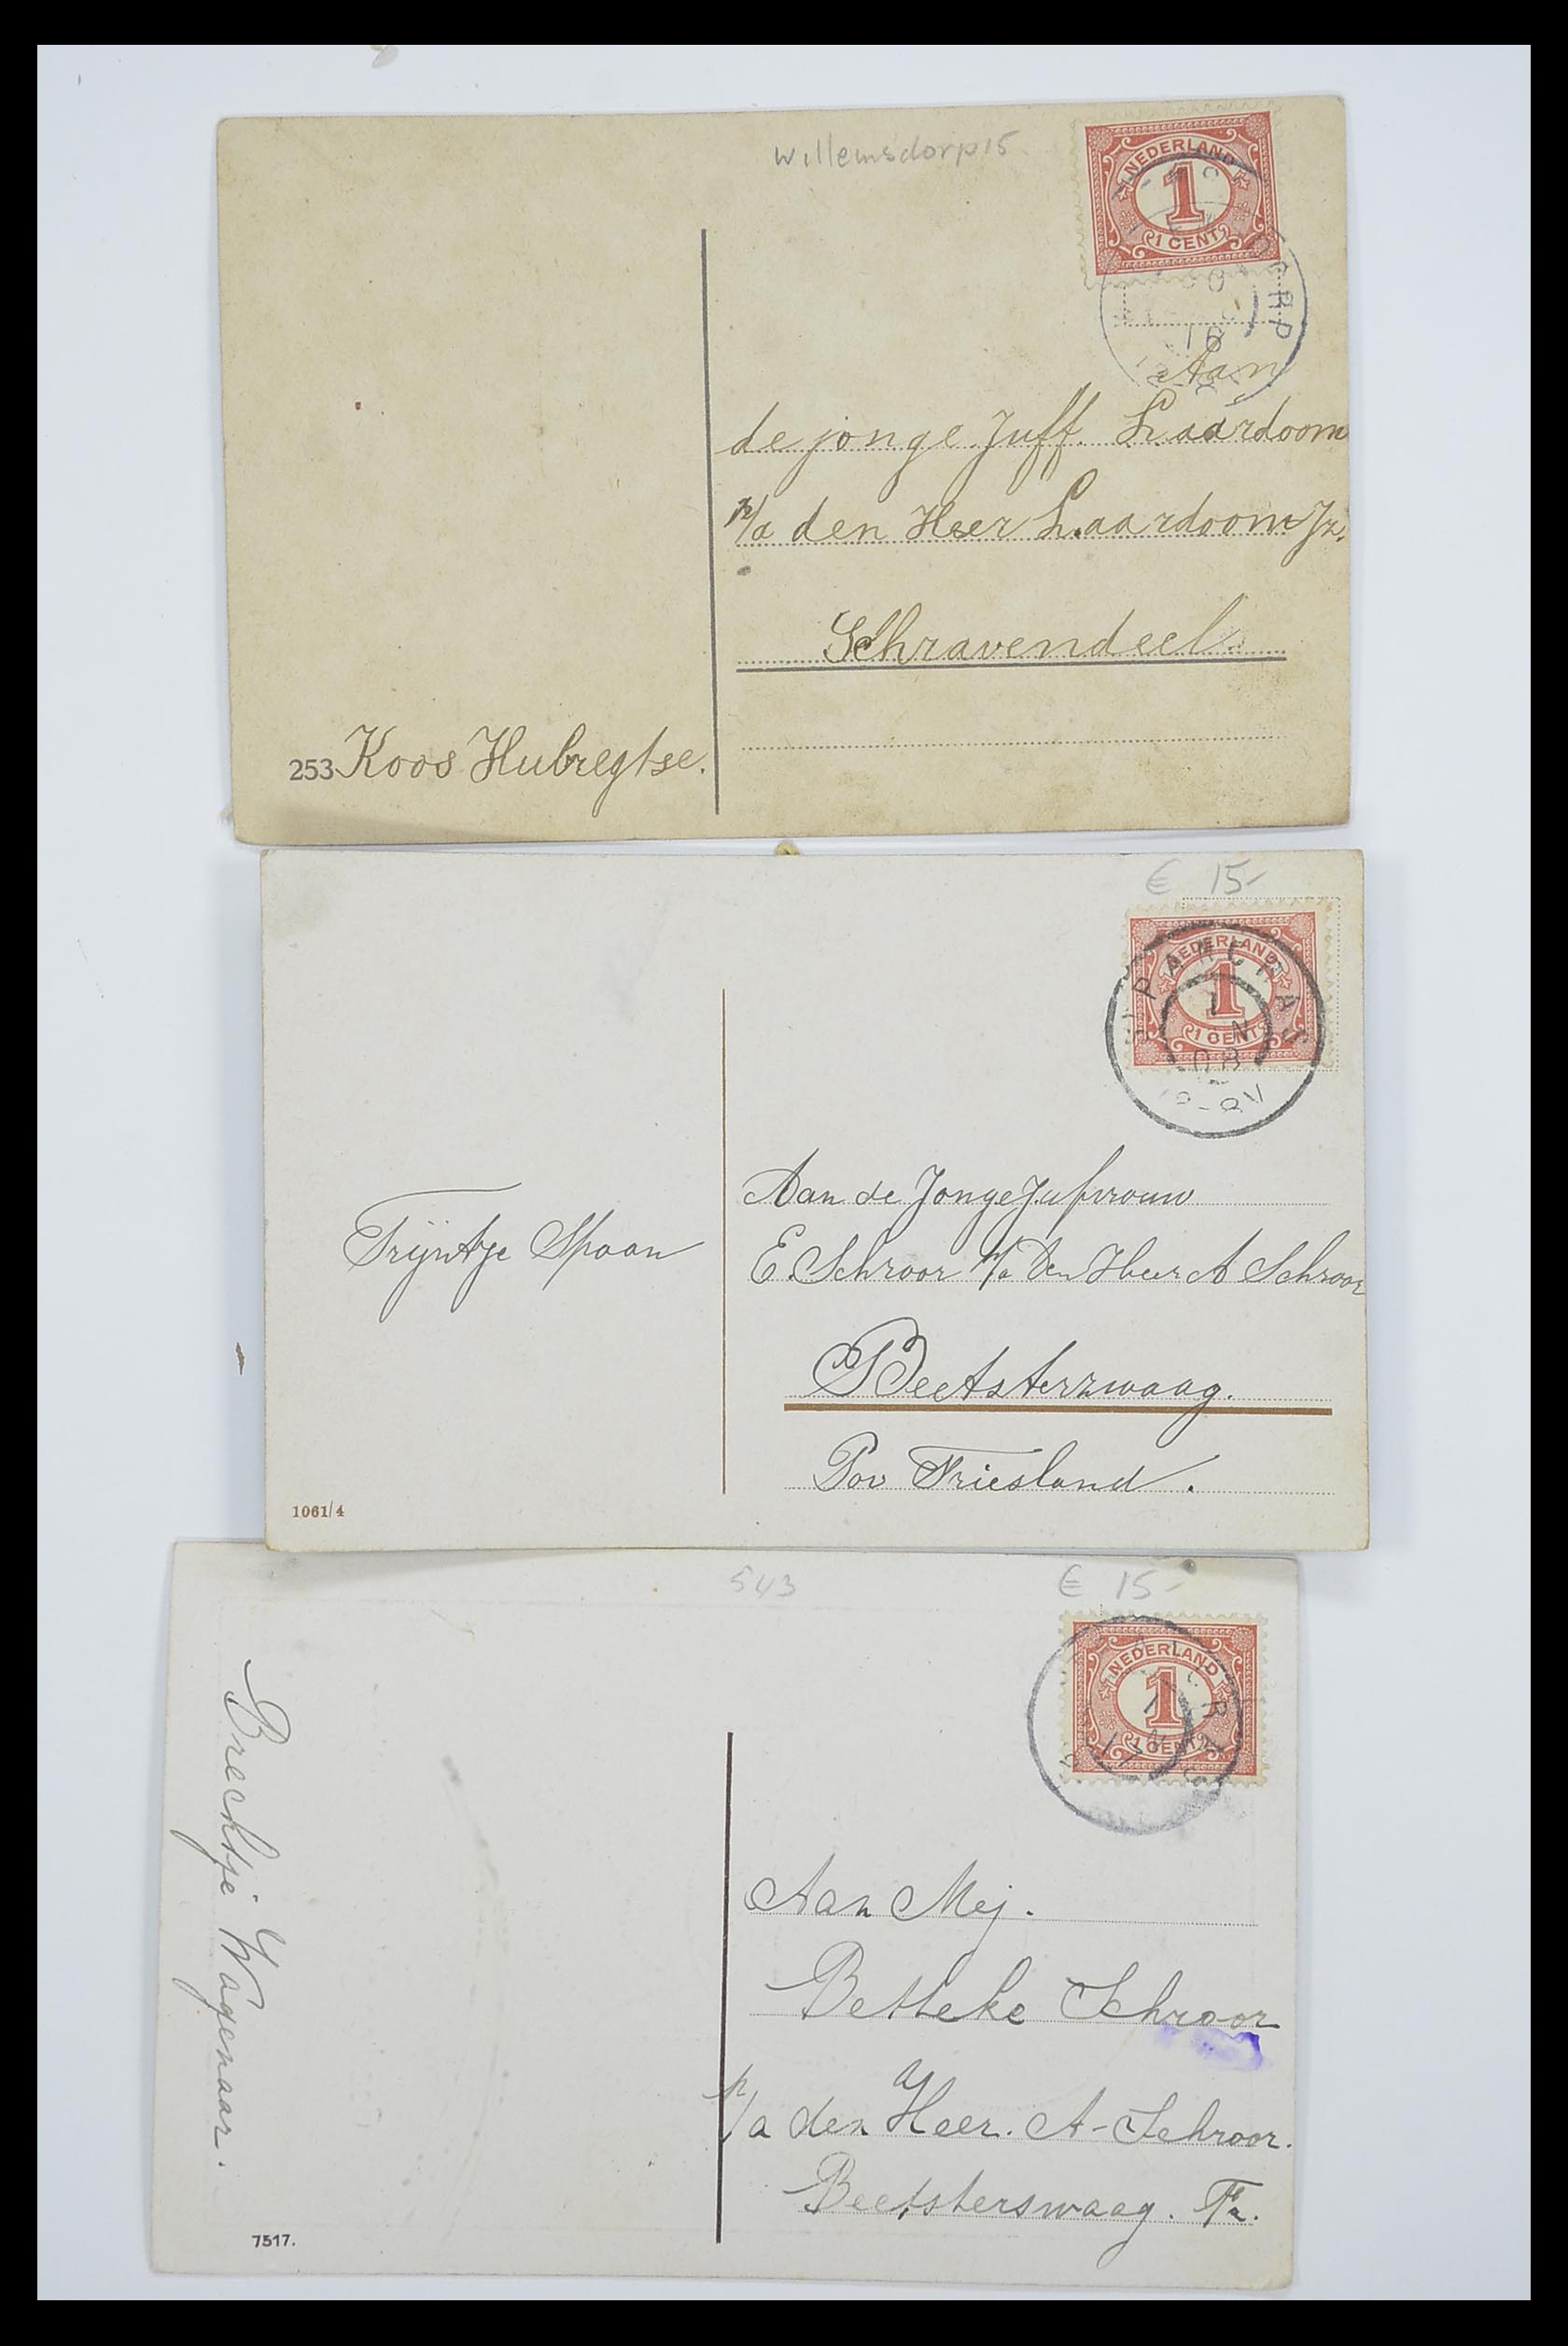 Willemsdorp 15
NEDERLAND
1
1 CENT
DORP
16
Aan
de jonge Juff. Laardoom
p/a den Heer Laardoom Jr.
Schravendeel
253 Koos Hubregtse.
€ 15-
NEDERLAND
1
1 CENT
ST PANCRAS
1 N
08
8-9V
Aan de Jonge Jufvrouw
E. Schroor p/a Den Heer A Schroor
Trijntje Spaan
Beetsterzwaag.
Pov Friesland.
1061/4
543
€ 15-
NEDERLAND
1
1 CENT
17
Aan Mej.
Betteke Schroor
p/a den Heer. A-Schroor.
Beetsterswaag. Fr.
Brechtje Wagenaar.
7517.